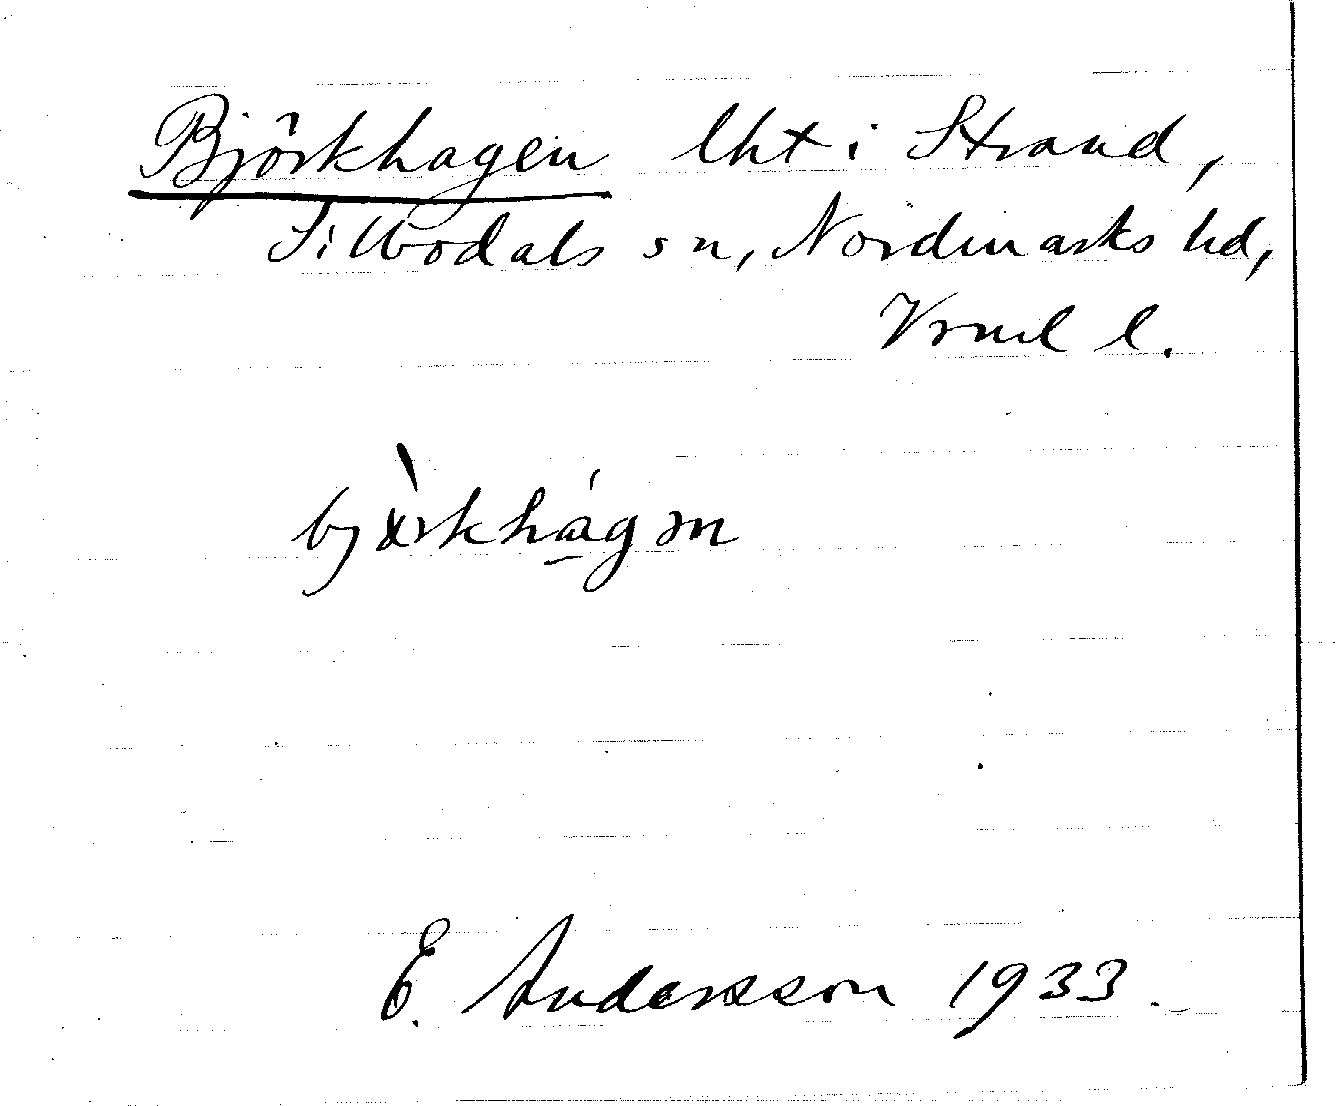 Björkhagen lht i Strand,
Silbodals sn, Nordmarks hd,
Vrml l.
E. Andersson 1933.